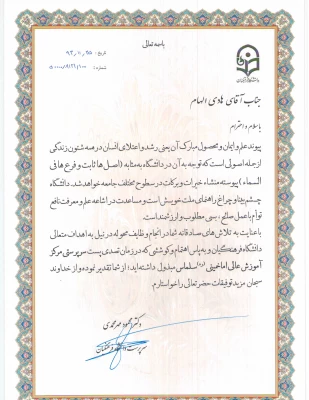 باسمه تعالی
تاریخ: ۹۳/۱۰/۲۵
شماره: ۵۰۰۰۰/۱۹۲۲۱/۱۰۰
جناب آقای هادی الهام
با سلام و احترام
پیوند علم و ایمان و محصول مبارک آن یعنی رشد و اعتلای انسان در همه شئون زندگی
از جمله اصولی است که توجه به آن در دانشگاه به مثابه (اصلها ثابت و فرعها فی
السماء) پیوسته منشاء خیرات و برکات در سطوح مختلف جامعه خواهد شد. دانشگاه
چشم بینا و چراغ راهنمای ملت خویش است و مساعدت در اشاعه علم و معرفت نافع
توأم با عمل صالح، سعی مطلوب و ارزشمند است.
با عنایت به تلاش‌های صادقانه شما در انجام وظایف محوله در نیل به اهداف متعالی
دانشگاه فرهنگیان و به پاس اهتمام و کوششی که در زمان تصدی پست سرپرستی مرکز
آموزش عالی امام خمینی (ره) مبذول داشته‌اید؛ از شما تقدیر نموده و از خداوند
سبحان مزید توفیقات حضرتعالی را خواستارم.
دکتر محمود مهرمحمدی
سرپرست دانشگاه فرهنگیان